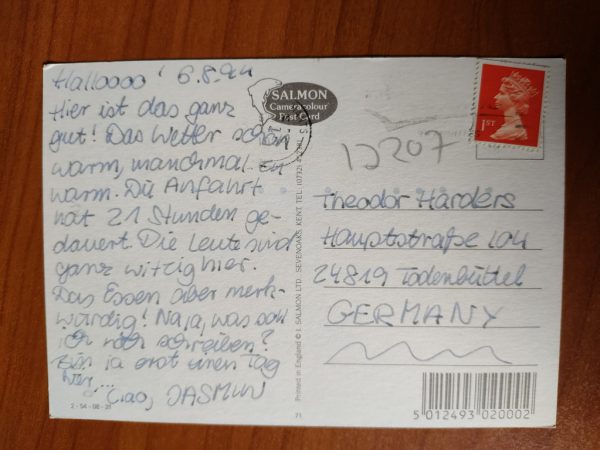 Halloooo! 6.8.94
Hier ist das ganz
gut! Das Wetter schön
warm, manchmal zu
warm. Die Anfahrt
hat 21 Stunden ge-
dauert. Die Leute sind
ganz witzig hier.
Das Essen aber merk-
würdig! Na ja, was soll
ich noch schreiben?
Bin ja erst einen Tag
hier...
Ciao, JASMIN
2-54-08-31
SALMON
Cameracolour
Post Card
Printed in England © J. SALMON LTD., SEVENOAKS, KENT TEL: (0732)
71
1ST
12207
Theodor Harders
Hauptstraße 104
24819 Todenbüttel
GERMANY
5 012493 020002